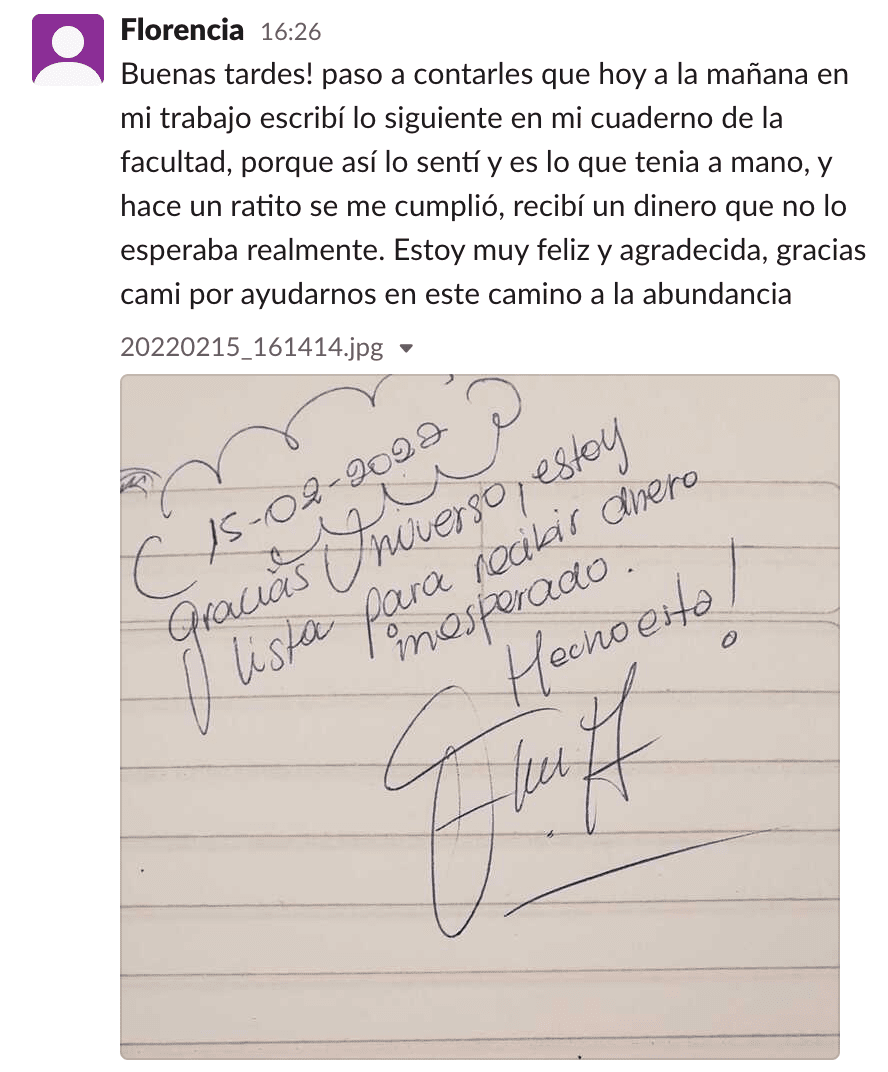 Florencia 16:26
Buenas tardes! paso a contarles que hoy a la mañana en
mi trabajo escribí lo siguiente en mi cuaderno de la
facultad, porque así lo sentí y es lo que tenia a mano, y
hace un ratito se me cumplió, recibí un dinero que no lo
esperaba realmente. Estoy muy feliz y agradecida, gracias
cami por ayudarnos en este camino a la abundancia
20220215_161414.jpg
15-02-2022
Gracias Universo, estoy
lista para recibir dinero
inesperado.
Hecho esta!